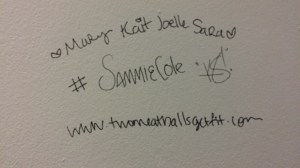 Mary Kait Joelle Sara
# SammieCole
www.twomeatballsgetfit.com